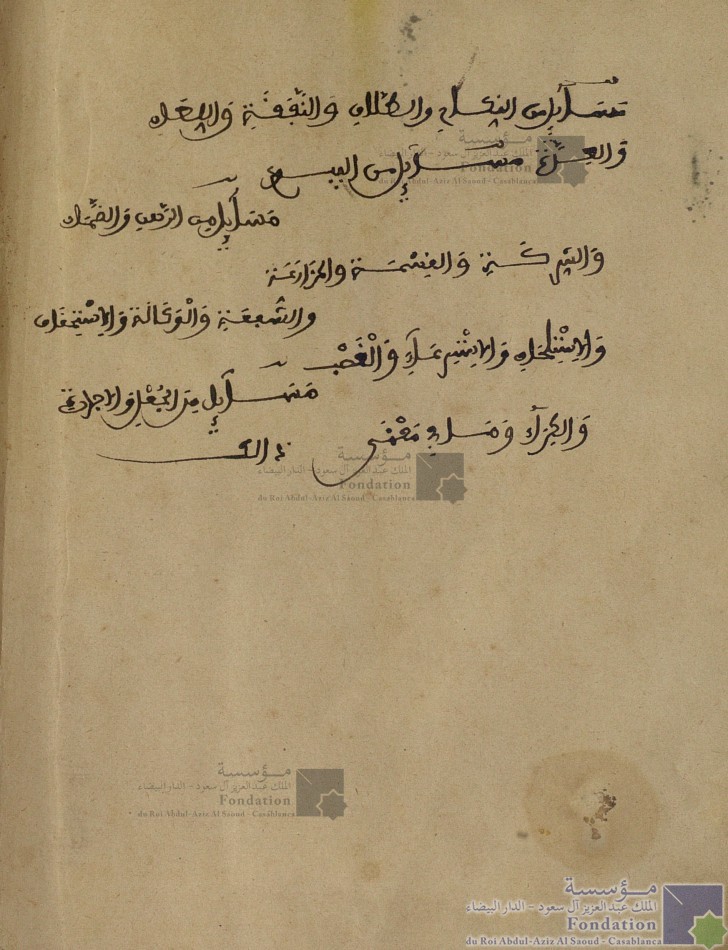 مسائل من النكاح والطلاق والنفقة والصداق
والعدة مسائل من البيوع
مسائل من الرهن والضمان
والشركة والقسمة والمزارعة
والشفعة والوكالة والاستحقاق
والاستلحاق والاسترعاء والغصب
مسائل من الجعل والاجارة
والكراء وما في معنى ذلك
مؤسسة
الملك عبد العزيز آل سعود - الدار البيضاء
Fondation
du Roi Abdul-Aziz Al Saoud - Casablanca
مؤسسة
الملك عبد العزيز آل سعود - الدار البيضاء
Fondation
du Roi Abdul-Aziz Al Saoud - Casablanca
مؤسسة
الملك عبد العزيز آل سعود - الدار البيضاء
Fondation
du Roi Abdul-Aziz Al Saoud - Casablanca
مؤسسة
الملك عبد العزيز آل سعود - الدار البيضاء
Fondation
du Roi Abdul-Aziz Al Saoud - Casablanca